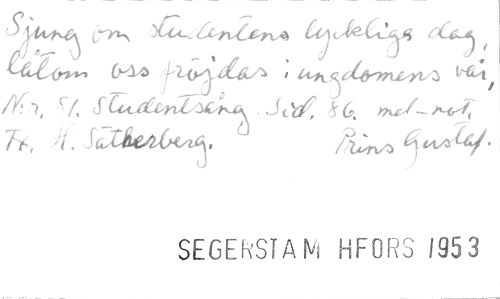 Sjung om studentens lyckliga dag,
låtom oss fröjdas i ungdomens vår,
N:r. 81. Studentsång. Sid. 86. mel-not.
H. Sätherberg. Prins Gustaf.
SEGERSTAM HFORS 1953